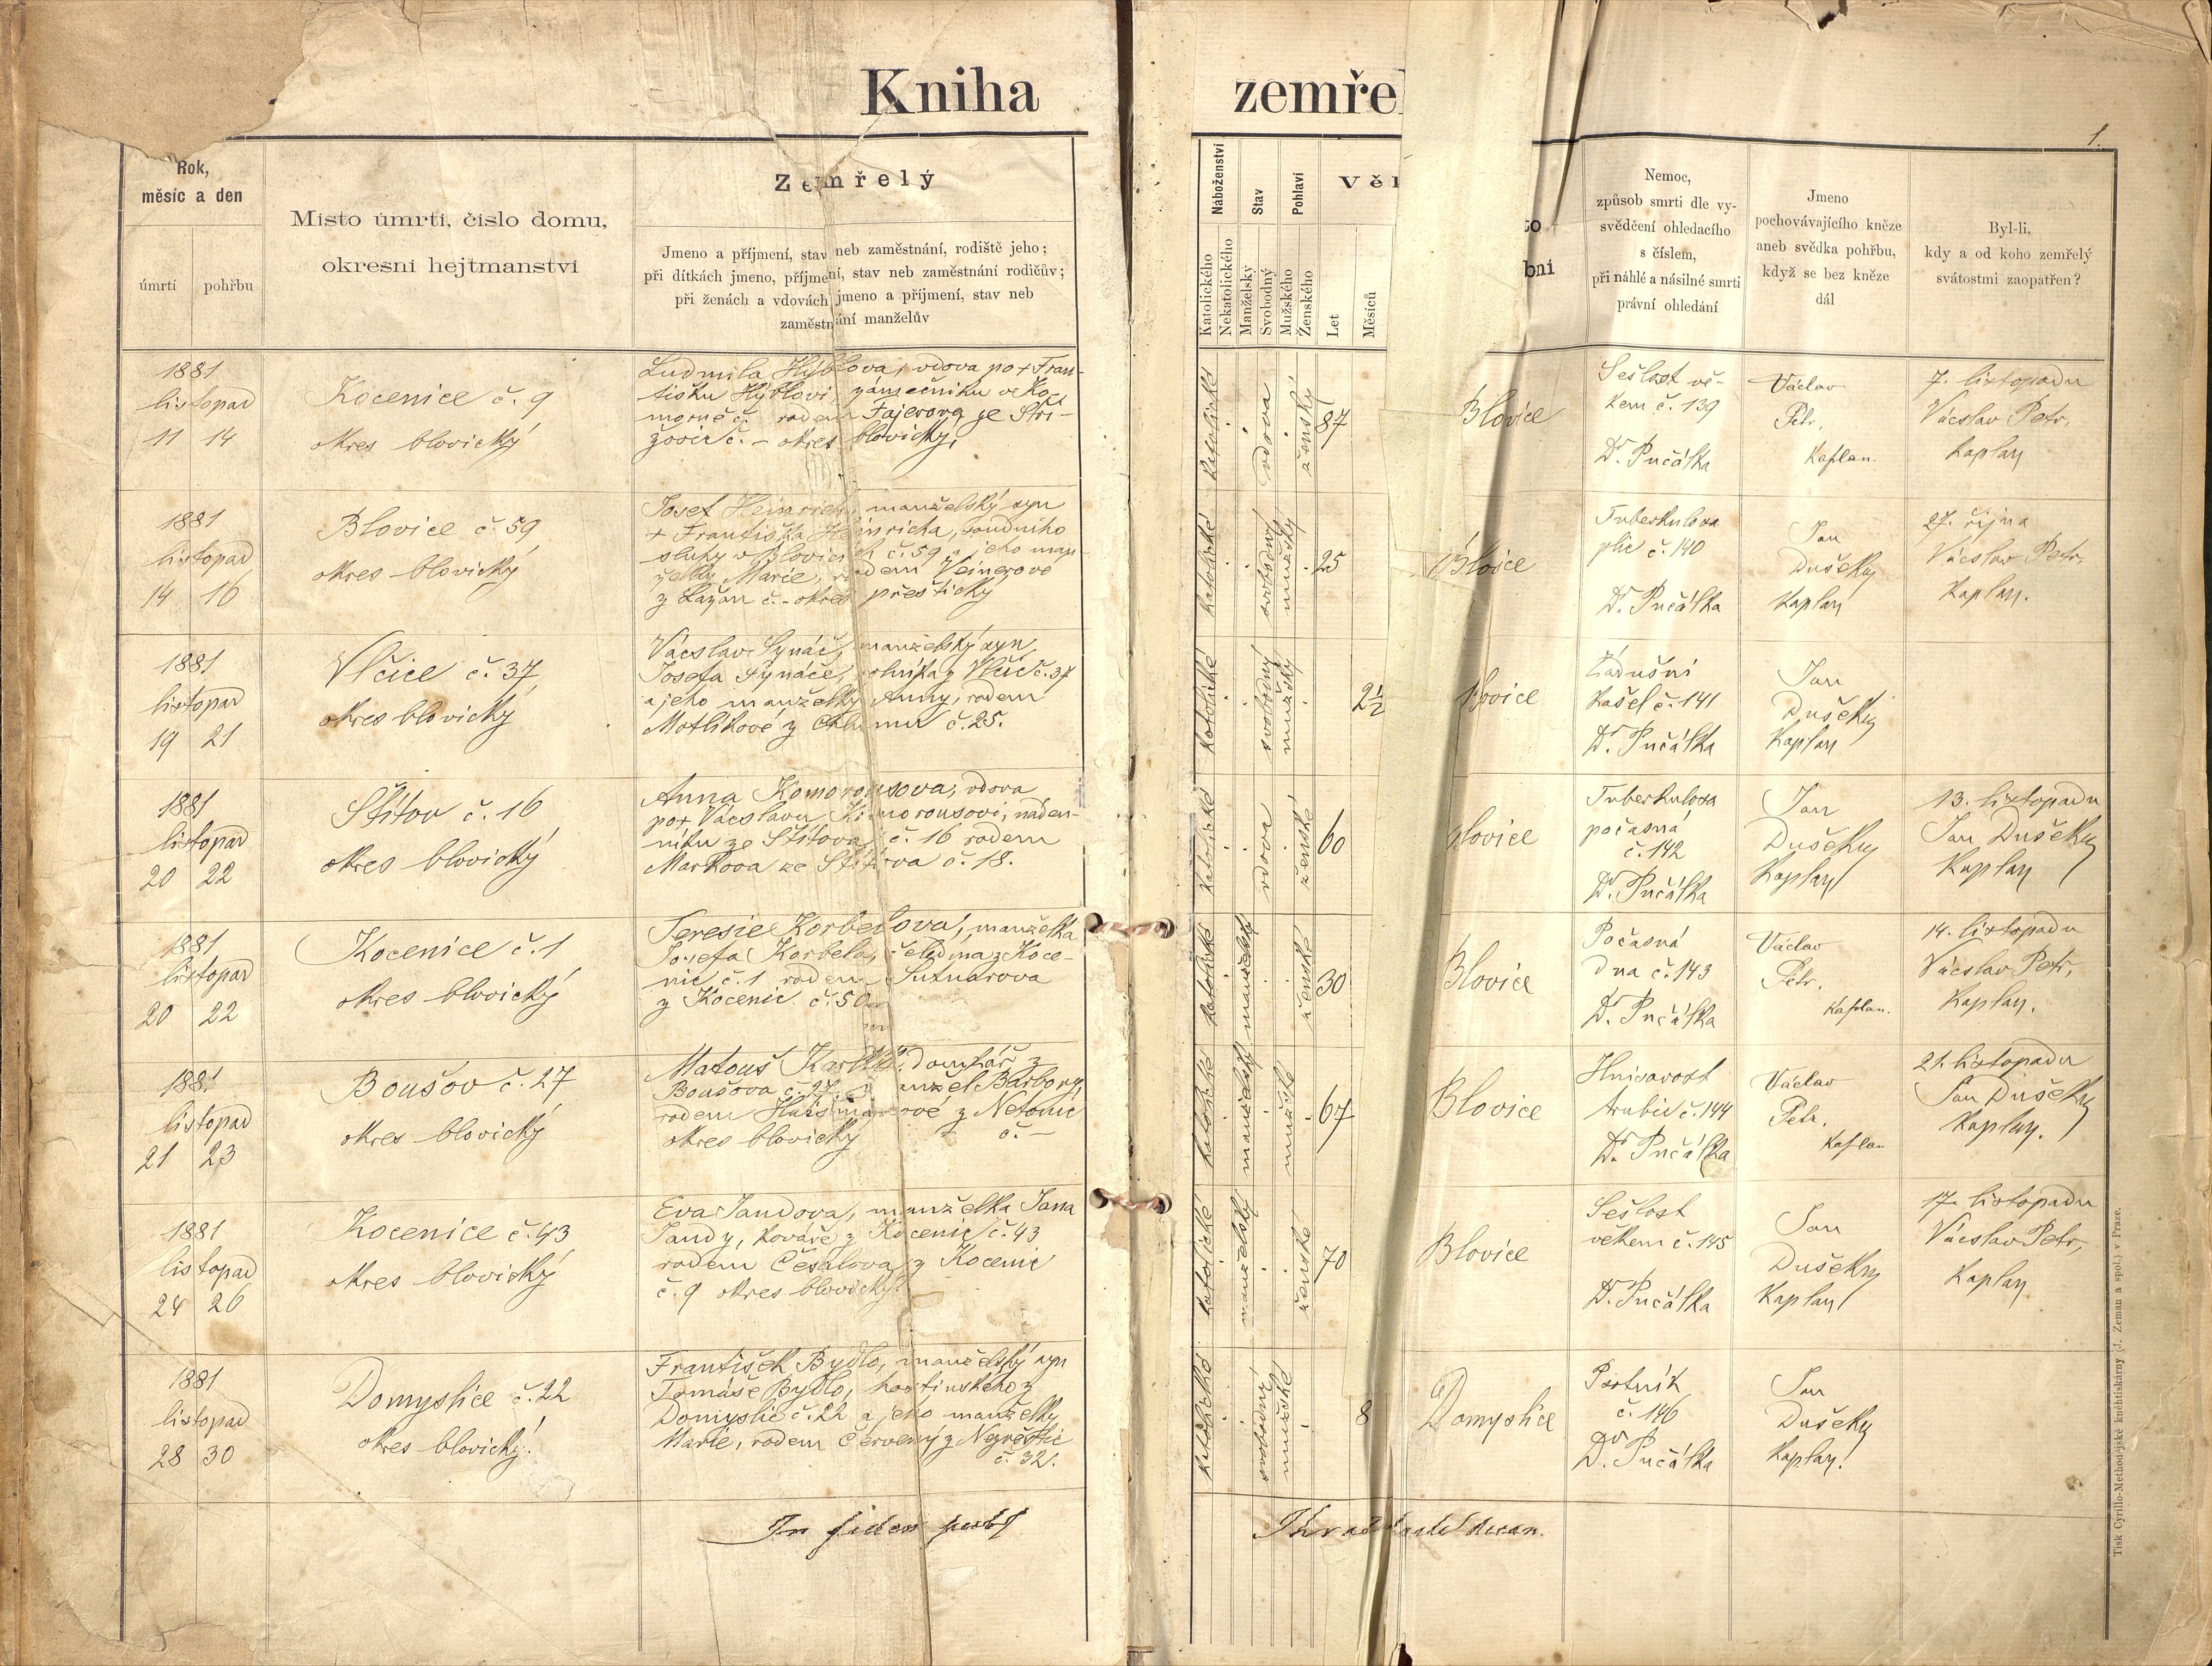 Kniha zemře
1.
Rok,
měsíc a den
úmrtí
pohřbu
Místo úmrtí, číslo domu,
okresní hejtmanství
Zemřelý
Jmeno a příjmení, stav neb zaměstnání, rodiště jeho;
při dítkách jmeno, příjmení, stav neb zaměstnání rodičův;
při ženách a vdovách jmeno a příjmení, stav neb
zaměstnání manželův
Náboženství
Katolického
Nekatolického
Stav
Manželský
Svobodný
Pohlaví
Mužského
Ženského
Let
Měsíců
Nemoc,
způsob smrti dle vy-
svědčení ohledacího
s číslem,
při náhlé a násilné smrti
právní ohledání
Jmeno
pochovávajícího kněze
aneb svědka pohřbu,
když se bez kněze
dál
Byl-li,
kdy a od koho zemřelý
svátostmi zaopatřen?
1881
listopad
11 14
Kocenice č. 9
okres blovický
Ludmila Hýblova, vdova po + Fran-
tišku Hýblovi, zámečníku v
rodem Fajerova ze Stri-
žovic č. - okres blovický.
katolické
vdova
ženský
87
Blovice
Sešlost vě-
kem č. 139
Dr. Pučálka
Václav
Petr,
Kaplan.
7. listopadu
Václav Petr,
kaplan
1881
listopad
14 16
Blovice č. 59
okres blovický
Josef Heinrich, manželský syn
+ Františka Heinricha, soudního
sluhy v Blovicích č. 59 a jeho man-
želky Marie, rodem Veinerové
z Lažan č. - okres přeštický
katolické
svobodný
mužský
25
Blovice
Tuberkulosa
plic č. 140
Dr. Pučálka
Jan
Dušek
Kaplan
27. října
Václav Petr,
Kaplan.
1881
listopad
19 21
Vlčice č. 37
okres blovický
Václav Synáč, manželský syn
Josefa Synáče, rolníka z Vlčic č. 37
a jeho manželky Anny, rodem
Motlíkové z Chlumu č. 25.
katolické
svobodný
mužský
2½
Blovice
Zádušní
kašel č. 141
Dr. Pučálka
Jan
Dušek
Kaplan
1881
listopad
20 22
Štítov č. 16
okres blovický
Anna Komorousova, vdova
po + Václavu Komorousovi, náden-
níku ze Štítova č. 16 rodem
Markova ze Štítova č. 18.
katolické
vdova
ženské
60
Blovice
Tuberkulosa
počasná
č. 142
Dr. Pučálka
Jan
Dušek
Kaplan
13. listopadu
Jan Dušek
Kaplan
1881
listopad
20 22
Kocenice č. 1
okres blovický
Teresie Korbelova, manželka
Josefa Korbela, čeledína z Koce-
nic č. 1 rodem
z Kocenic č. 50
katolické
manželský
ženské
30
Blovice
Počasná
dna č. 143
Dr. Pučálka
Václav
Petr,
Kaplan.
14. listopadu
Václav Petr,
Kaplan.
1881
listopad
21 23
Boušov č. 27
okres blovický
Matouš domkář z
Boušova č. 27 manžel Barbory,
rodem z Netonic
okres blovický č. -
katolické
manželský
mužské
67
Blovice
Hnisavost
trubic č. 144
Dr. Pučálka
Václav
Petr,
Kaplan
21. listopadu
Jan Dušek
Kaplan.
1881
listopad
24 26
Kocenice č. 43
okres blovický
Eva Jandova, manželka Jana
Jandy, kováře z Kocenic č. 43
rodem Česalova z Kocenic
č. 9 okres blovický.
katolické
manželský
ženské
70
Blovice
Sešlost
věkem č. 145
Dr. Pučálka
Jan
Dušek
Kaplan
17. listopadu
Václav Petr,
Kaplan
1881
listopad
28 30
Domyslice č. 22
okres blovický.
František Bydlo, manželský syn
Tomáše Bydlo, hostinského z
Domyslic č. 22 a jeho manželky
Marie, rodem Červený z
č. 32.
katolické
svobodný
mužské
8
Domyslice
Psotník
č. 146
Dr. Pučálka
Jan
Dušek
Kaplan.
In fidem
Tisk Cyrillo-Methodějské knihtiskárny (J. Zeman a spol.) v Praze.